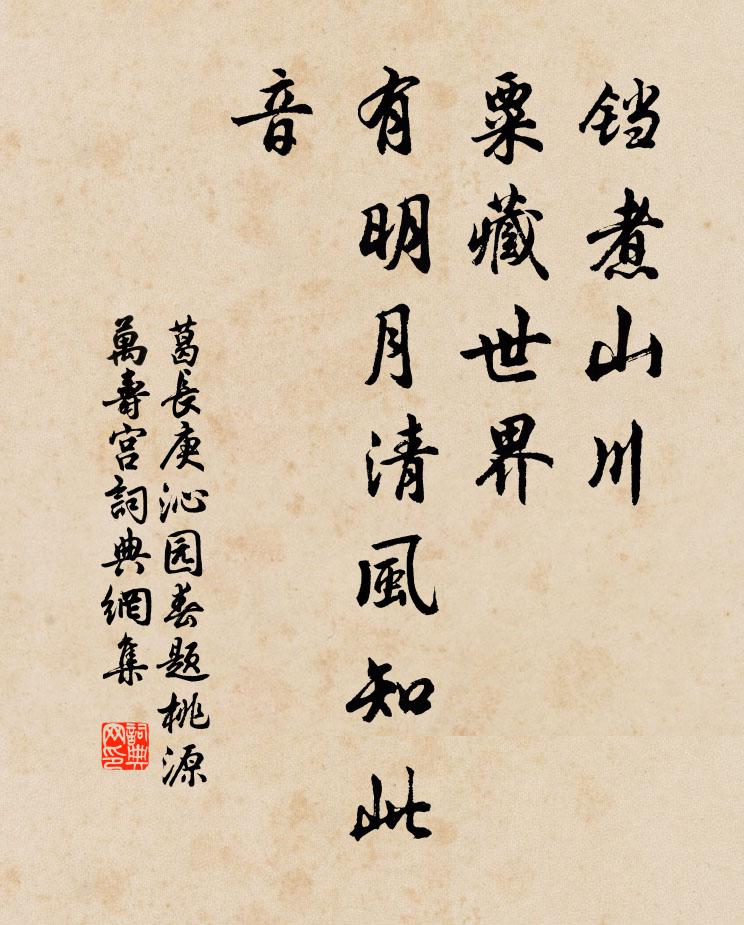 铛煮山川
粟藏世界
有明月清風知此
音
葛長庚沁园春题桃源
萬壽宫詞典網集
詞典网印